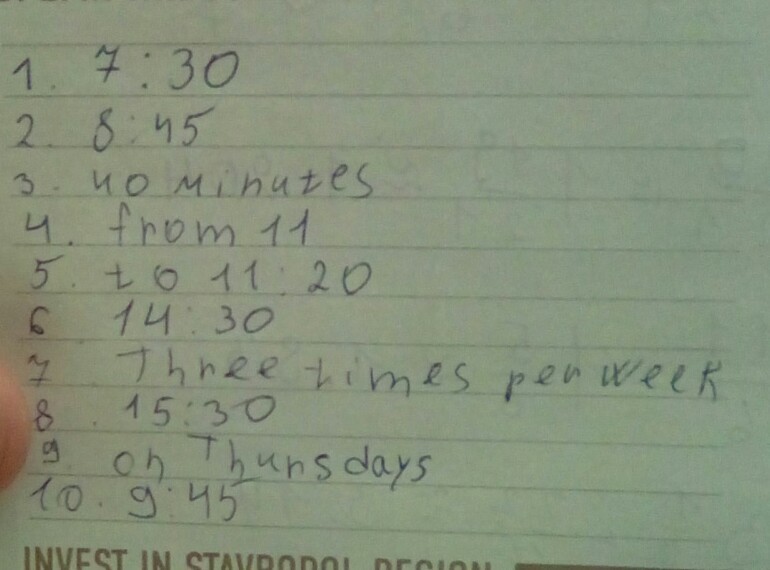 1. 7:30
2. 8:45
3. 40 minutes
4. from 11
5. to 11:20
6 14:30
7 Three times per week
8. 15:30
9 on Thursdays
10. 9:45
INVEST IN STAVROPOL REGION